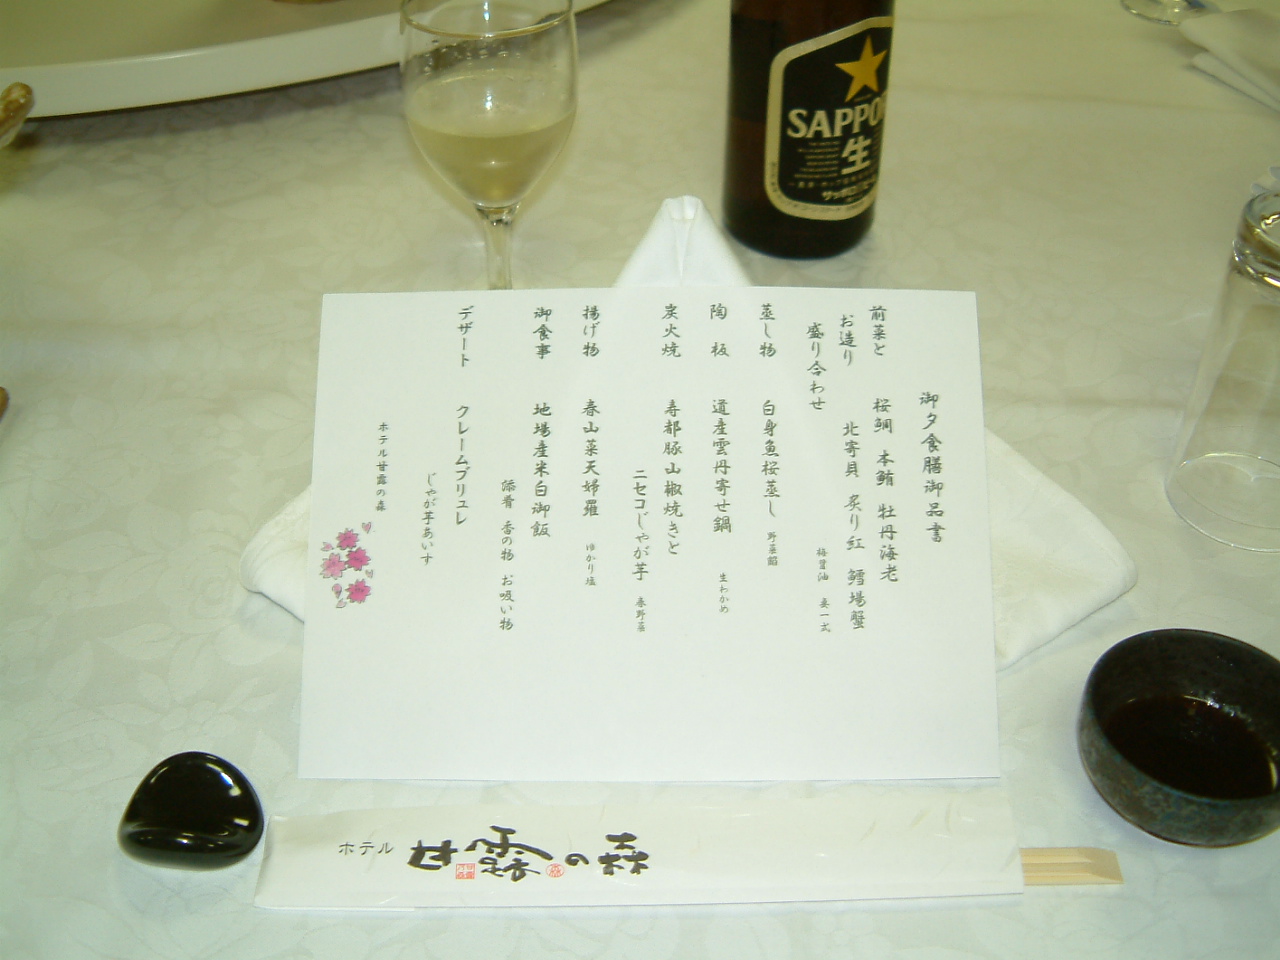 御夕食膳御品書
前菜と
お造り
盛り合わせ
桜鯛 本鮪 牡丹海老
北寄貝 炙り紅 鱈場蟹
梅醤油 妻一式
蒸し物 白身魚桜蒸し 野菜餡
陶板 道産雲丹寄せ鍋 生わかめ
炭火焼 寿都豚山椒焼きと
ニセコじゃが芋 春野菜
揚げ物 春山菜天婦羅 ゆかり塩
御食事 地場産米白御飯
添肴 香の物 お吸い物
デザート クレームブリュレ
じゃが芋あいす
ホテル甘露の森
SAPPO
生
サッポロ
ホテル 甘露の森